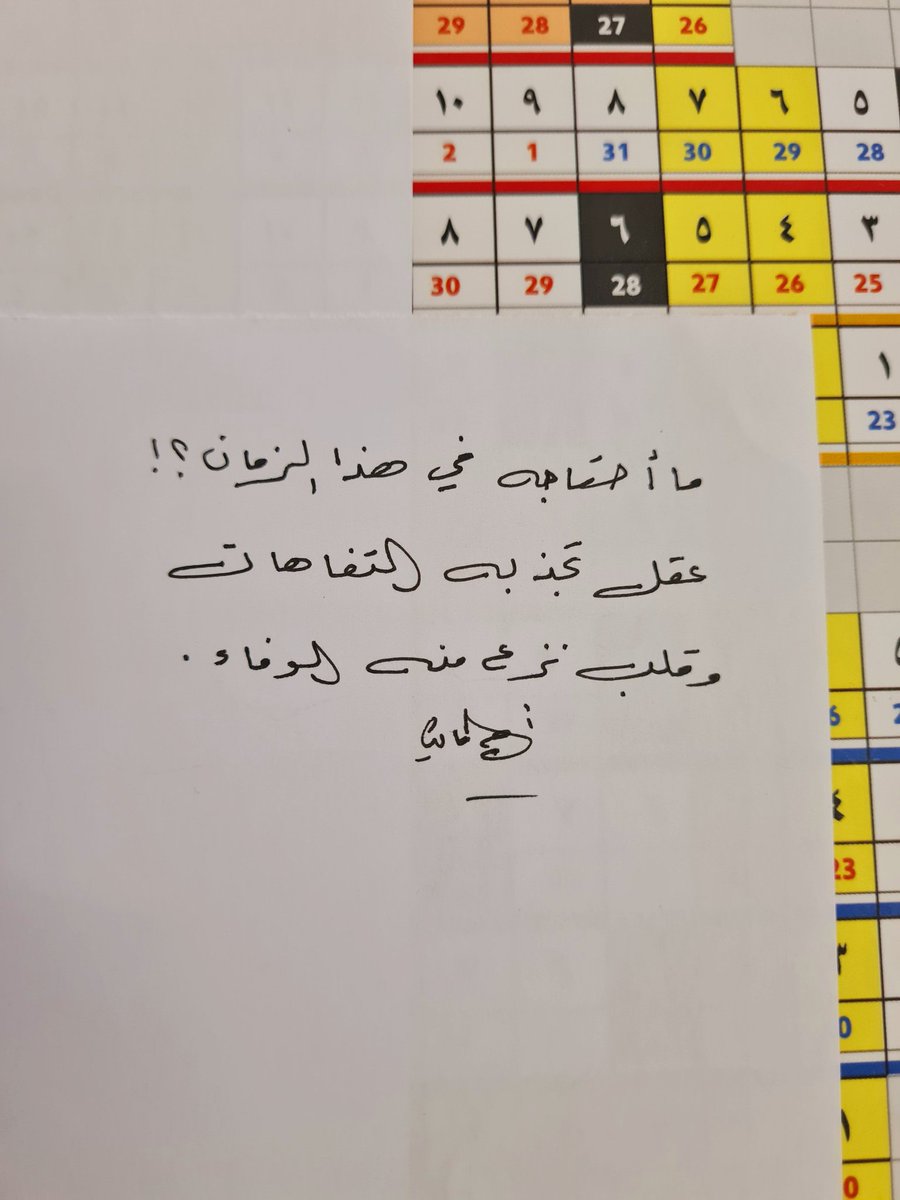 29 28 27 26
١٠ ٩ ٨ ٧ ٦ ٥
2 1 31 30 29 28
٨ ٧ ٦ ٥ ٤ ٣
30 29 28 27 26 25
١
23
ما أحتاجه في هذا الزمان؟!
عقل تجذبه التفاهات
وقلب نزع منه الوفاء.
6
٤
23
٣
0
١
0